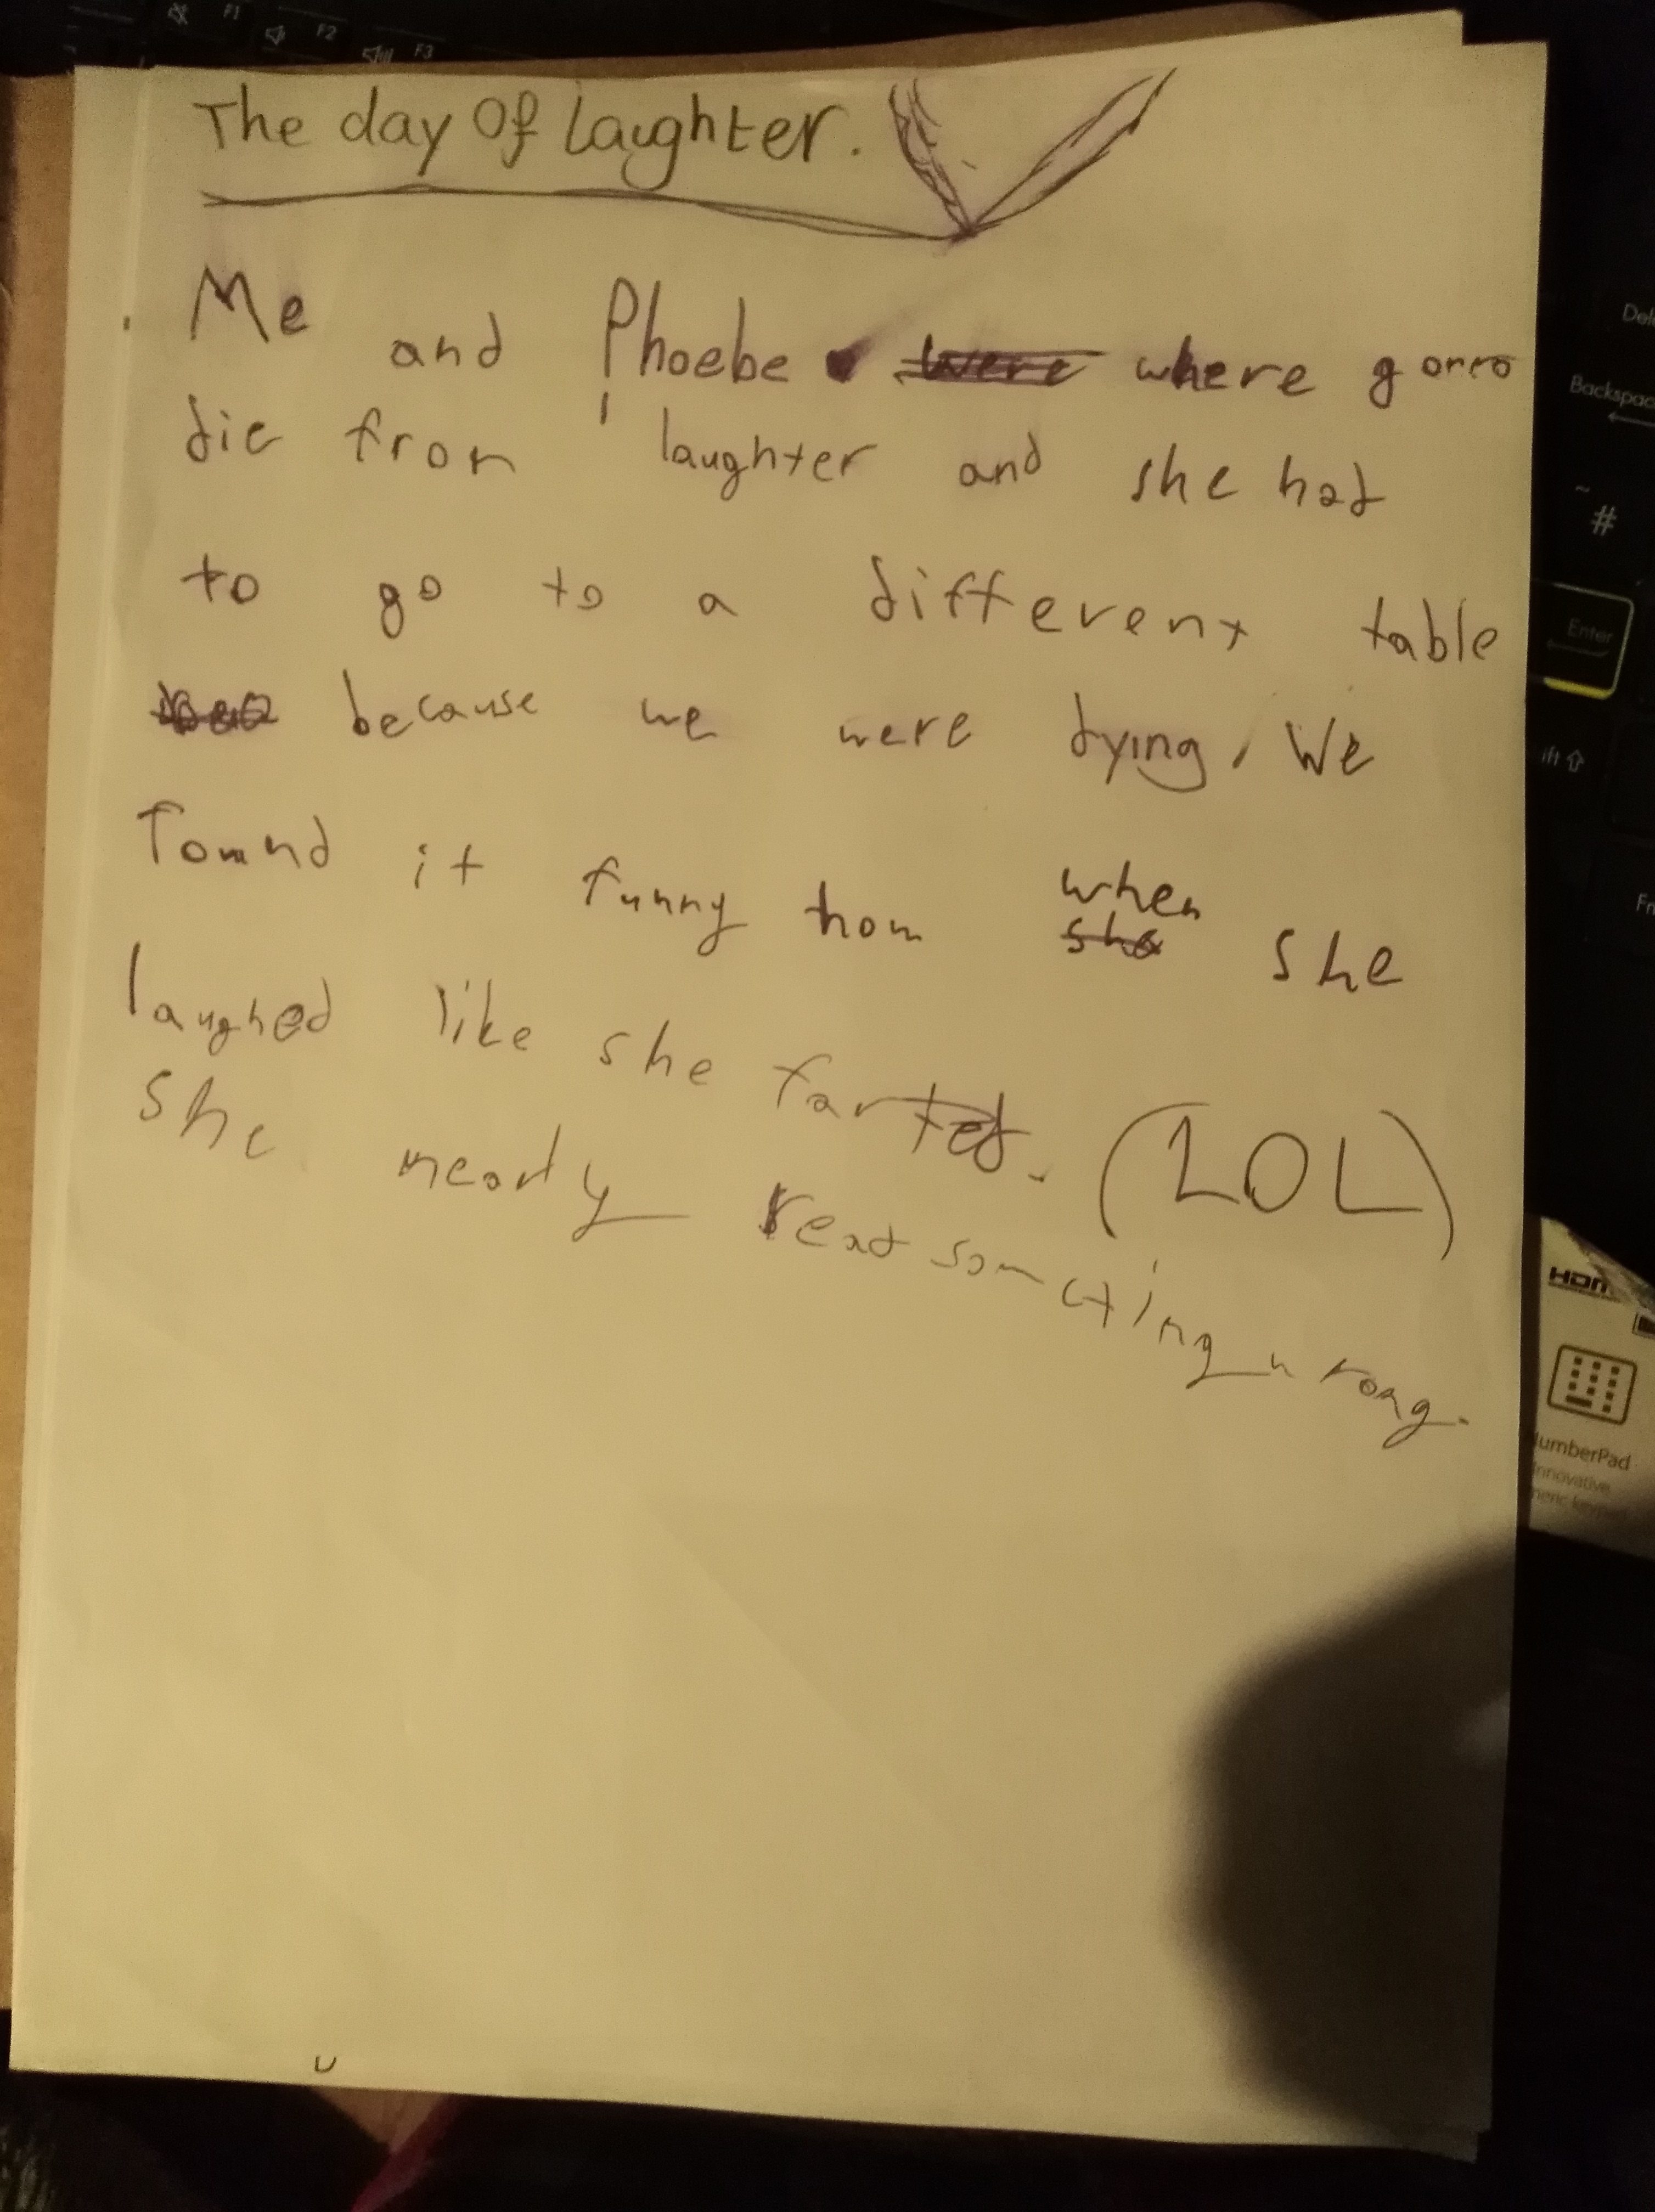 F1
F2
F3
The day Of Laughter.
Me and Phoebe were where gonno
die from laughter and she had
to go to a different table
because we were dying. We
Found it funny how when she she
laughed like she farted. (LOL)
she nearly read something wrong.
Del
Backspac
~
#
Enter
ift
Fn
HDMI
NumberPad
Innovative